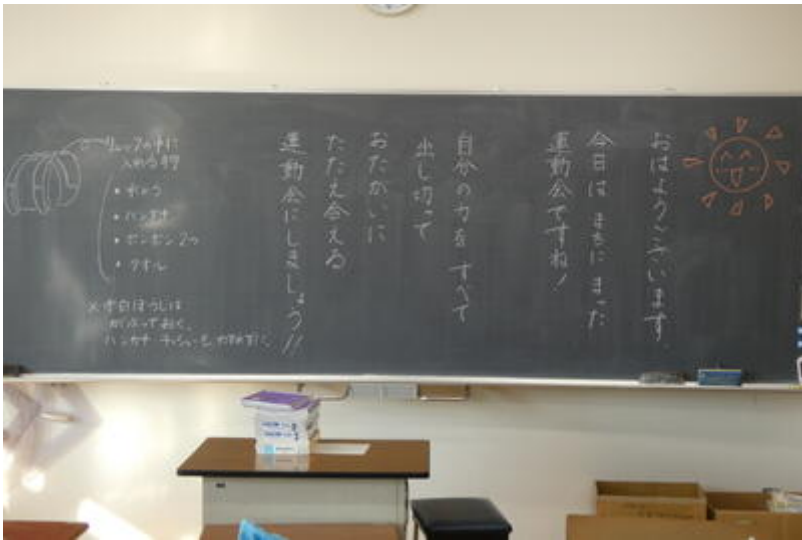 おはようございます。
今日は まちに まった
運動会ですね!
自分の力を すべて
出し切って
おたがいに
たたえ合える
運動会にしましょう!!
リュックの中に
入れる物
・水とう
・ハンカチ
・ポンポン2つ
・タオル
※赤白ぼうしは
かぶっておく。
ハンカチ ティッシュも わすれずに。